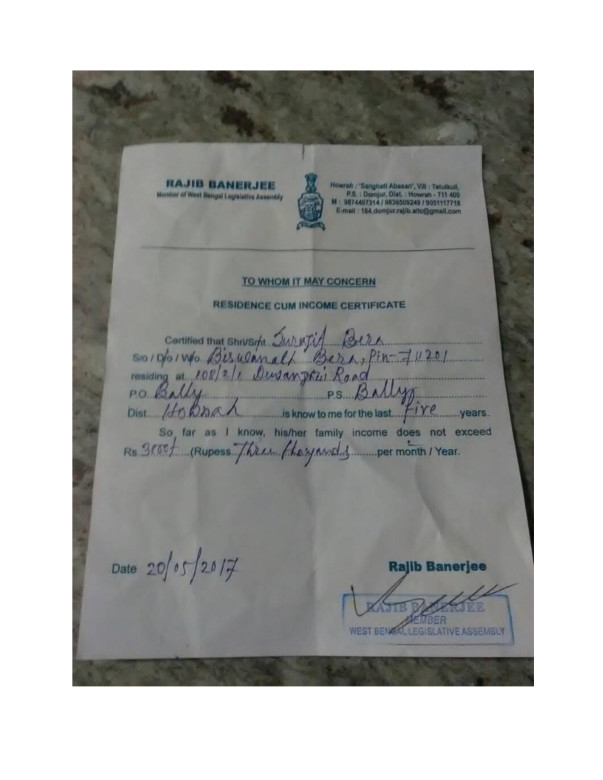 RAJIB BANERJEE
Member of West Bengal Legislative Assembly
Howrah : 'Sanghati Abasan', Vill : Tetulkuli,
P.S. : Domjur, Dist. : Howrah - 711 409
M : 9874467314 / 9836509249 / 9051117718
E-mail : 184.domjur.rajib.aitc@gmail.com
TO WHOM IT MAY CONCERN
RESIDENCE CUM INCOME CERTIFICATE
Certified that Shri/Smt Surajit Bera
S/o / D/o / W/o. Biswanath Bera, Pin-711201
residing at 108/2/1 Road
P.O. Bally P.S. Bally
Dist Howrah is know to me for the last five years.
So far as I know, his/her family income does not exceed
Rs 3000/- (Rupess Three thousands per month / Year.
Date 20/05/2017
Rajib Banerjee
RAJIB BANERJEE
MEMBER
WEST BENGAL LEGISLATIVE ASSEMBLY